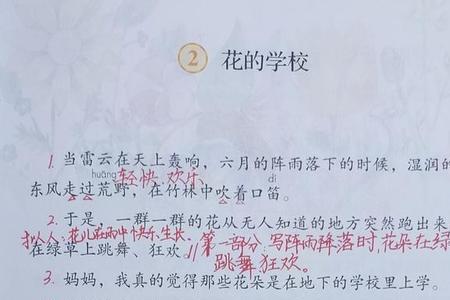 2 花的学校
1. 当雷云在天上轰响，六月的阵雨落下的时候，湿润的
huāng 轻快 欢乐 dí
东风走过荒野，在竹林中吹着口笛。
2. 于是，一群一群的花从无人知道的地方突然跑出来
拟人：花儿在雨中快乐生长。
在绿草上跳舞、狂欢。// 第一部分 写阵雨降落时，花朵在绿
跳舞狂欢。
3. 妈妈，我真的觉得那些花朵是在地下的学校里上学。